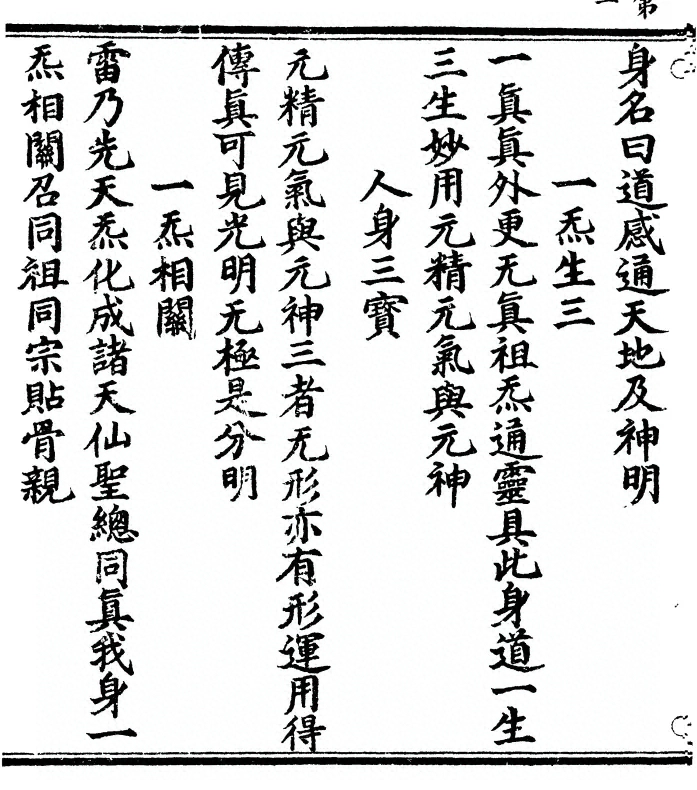 身名曰道感通天地及神明
一炁生三
一眞眞外更无眞祖炁通靈具此身道一生
三生妙用元精元氣與元神
人身三寳
元精元氣與元神三者无形亦有形運用得
傳眞可見光明无極是分明
一炁相關
雷乃先天炁化成諸天仙聖總同眞我身一
炁相關召同祖同宗貼骨親